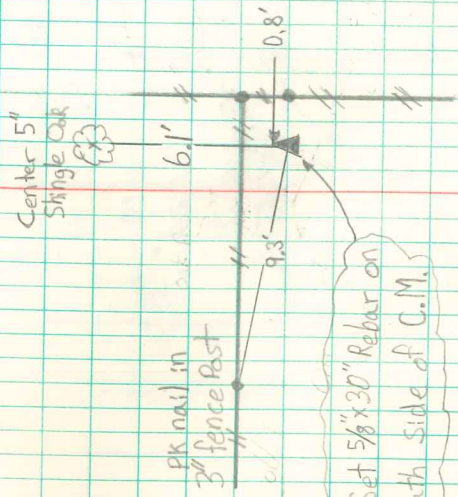 Center 5"
Shingle Oak
6.1'
0.8'
PK nail in
3" fence Post
9.3'
Set 5/8"x30" Rebar on
side of C.M.